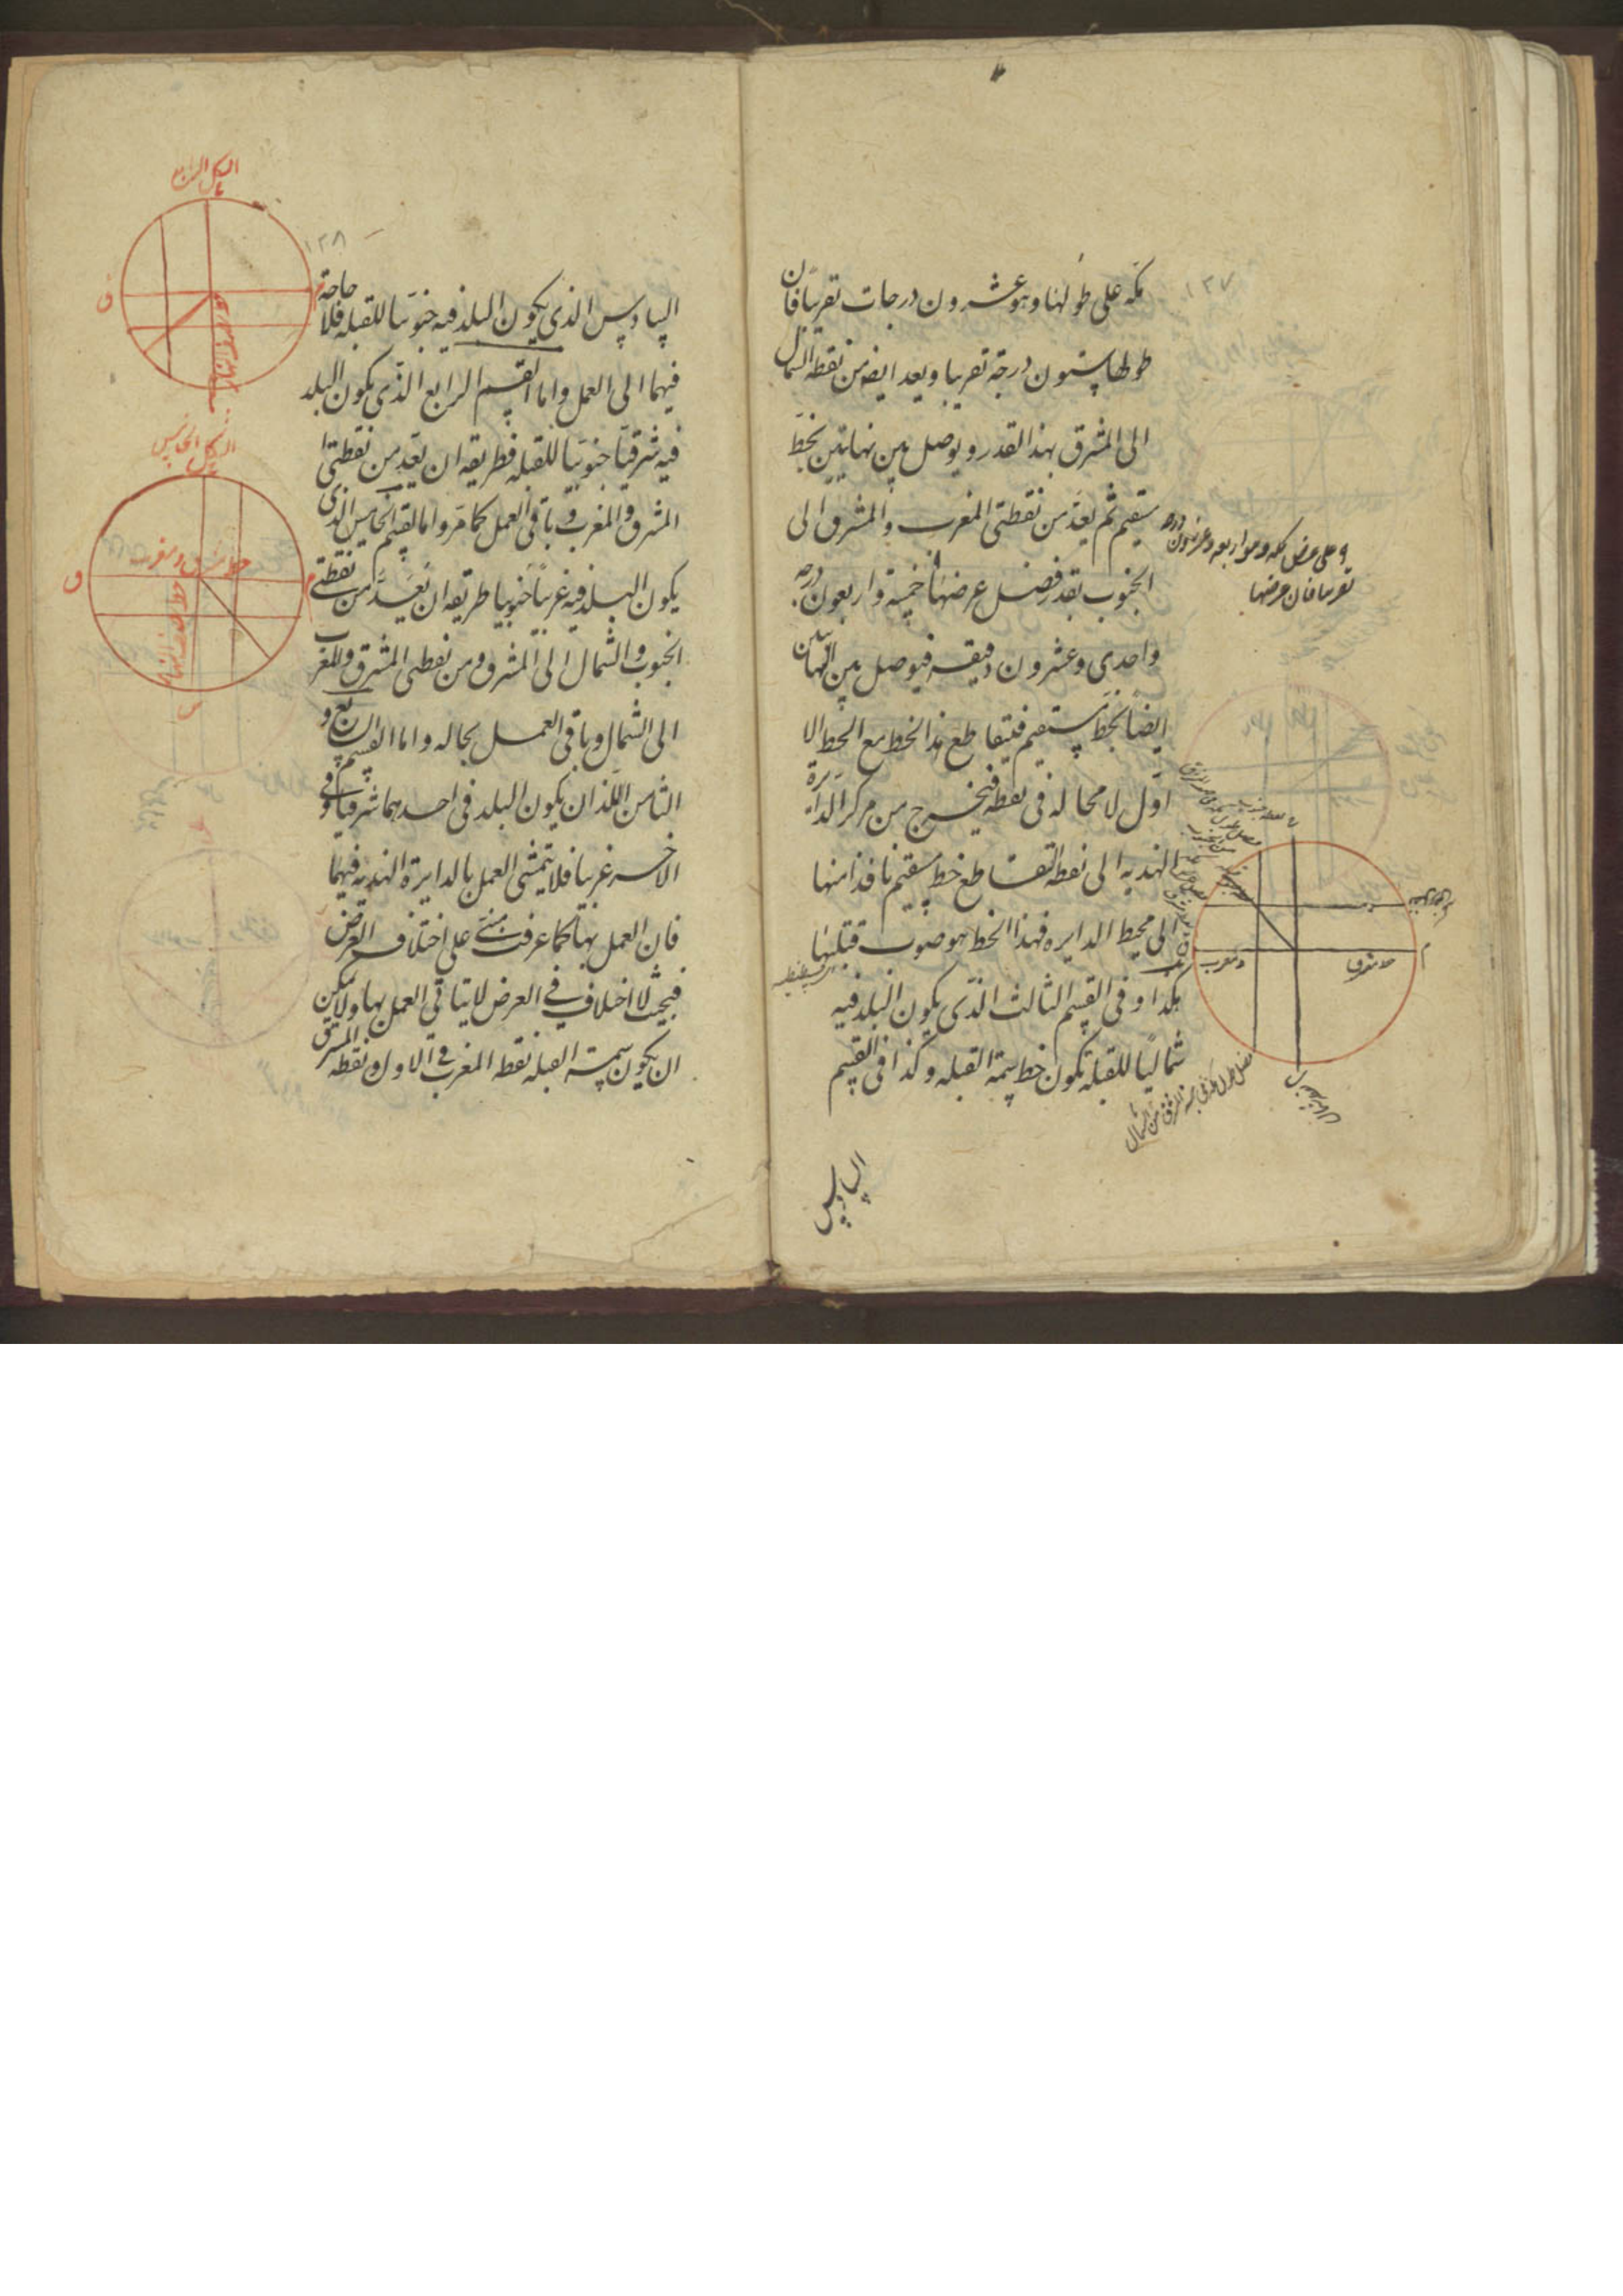 ١٢٧
مكه على طولها وهو عشرون درجات تقريبا فان
طولها ستون درجة تقريبا ويعد ايضا من نقطة الشمال
الى المشرق بهذا القدر ويوصل بين نهايتين بخط
مستقيم ثم يعد من نقطتى المغرب والمشرق الى
الجنوب بقدر فضل عرضها خمسة واربعون درجه
واحدى وعشرون دقيقه فيوصل بين النهايتين
ايضا بخط مستقيم فيتقاطع هذا الخط مع الخط الا
اول لا محاله فى نقطه فيخرج من مركز الدايرة
الهنديه الى نقطه التقاطع خط مستقيم نافذ امنها
الى محيط الدايره فهذا الخط هو صوب قبلتها
هكذا وفى القسم الثالث الذى يكون البلد فيه
شماليا للقبله تكون خط سمت القبله وكذا فى القسم
السادس
و على عرض مكه وهو اربعه وعشرون درجه
تقريبا فان عرضها
نقطه جنوب
خط مشرق
و مغرب
فضل طول مكه فى جهة المشرق من الشمال
١٢٨
السادس الذى يكون البلد فيه جنوبيا للقبله فلا حاجة
فيهما الى العمل واما القسم الرابع الذى يكون البلد
فيه شرقيا جنوبيا للقبله فطريقه ان يعد من نقطتى
المشرق والمغرب وباقى العمل كما مر واما القسم الخامس الذى
يكون البلد فيه غربيا جنوبيا طريقه ان يعد من نقطتى
الجنوب والشمال الى المشرق ومن نقطتى المشرق والمغرب
الى الشمال وباقى العمل بحاله واما القسم السابع و
الثامن اللذان يكون البلد فى احدهما شرقيا وفى
الاخر غربيا فلا يتمشى العمل بالدايرة الهنديه فيهما
فان العمل بها كما عرفت مبنى على اختلاف العرض
فبحيث لا اختلاف فى العرض لا يتاتى العمل بها ولا يمكن
ان يكون سمت القبله نقطه المغرب فى الاول ونقطه المشرق
الشكل الرابع
الشكل الخامس
خط مشرق و مغرب
خط نصف النهار